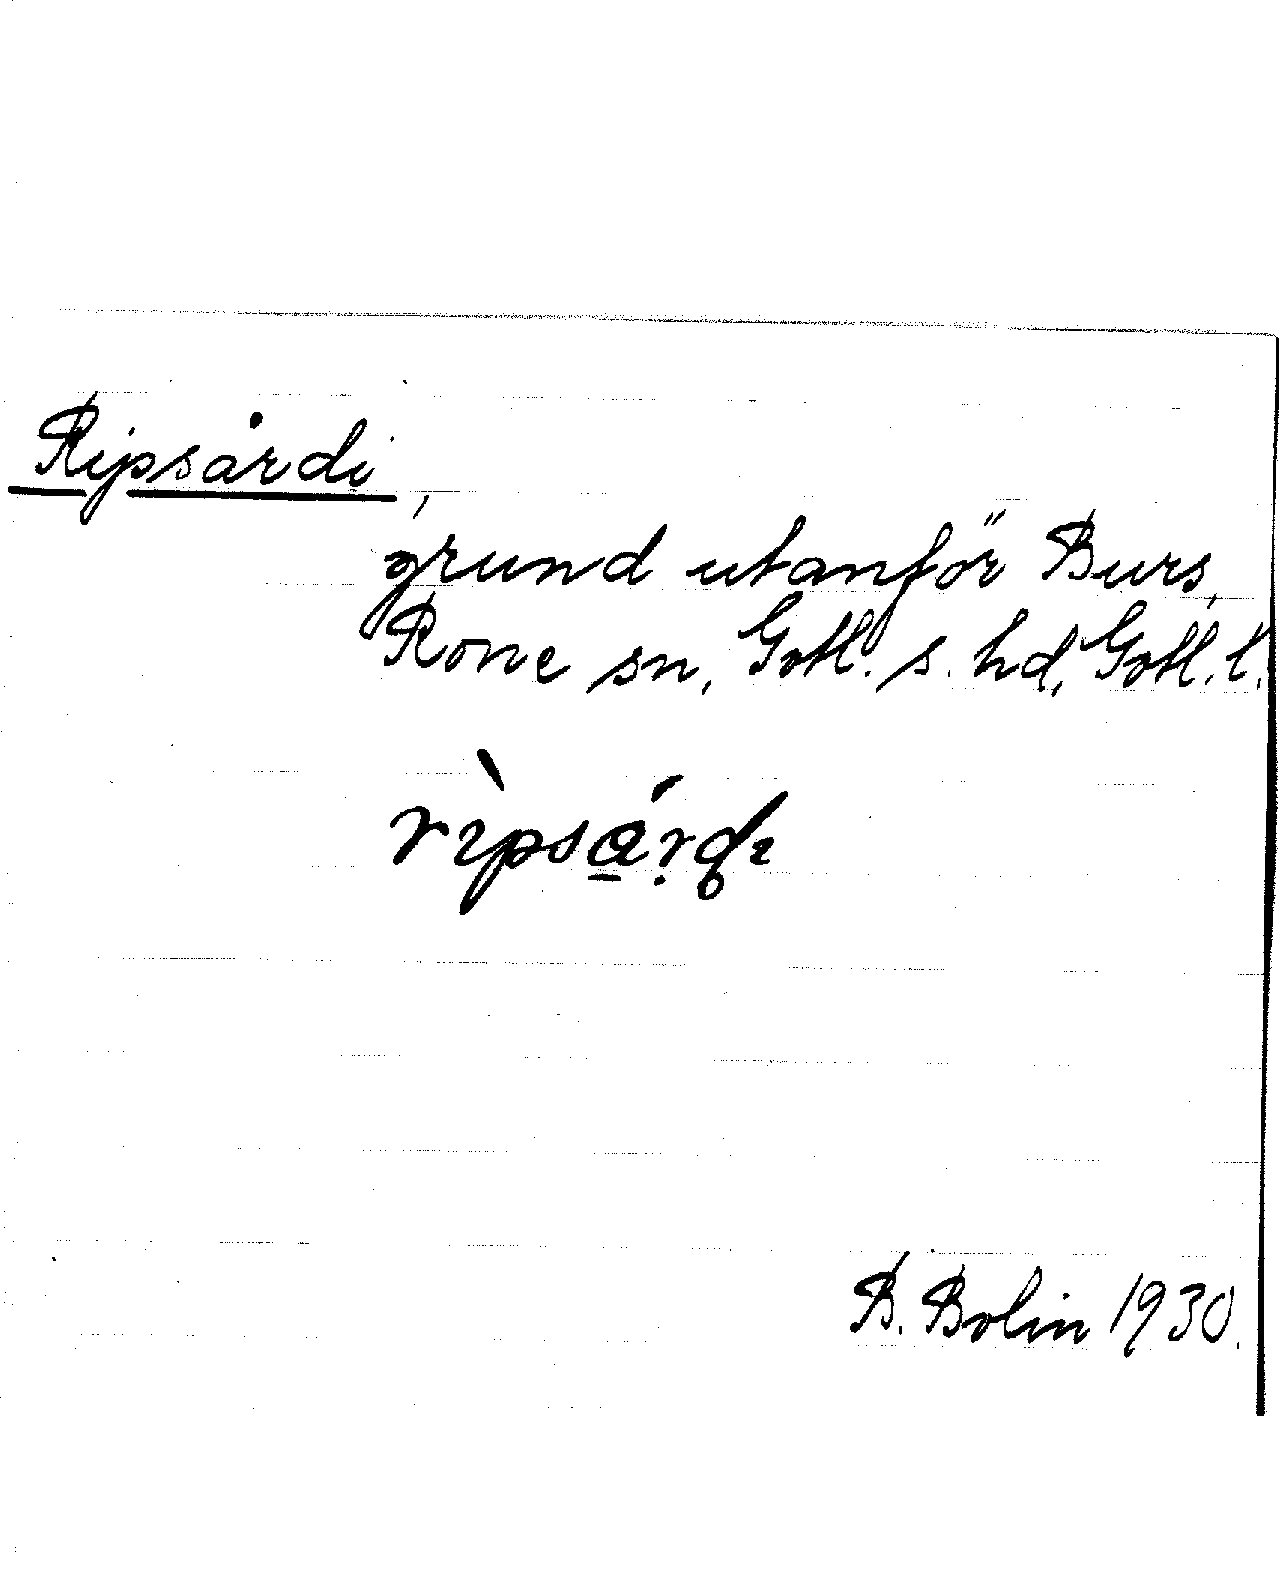 Ripsårdi,
grund utanför Burs,
Rone sn, Gotl. s. hd, Gotl. l.
B. Bolin 1930.